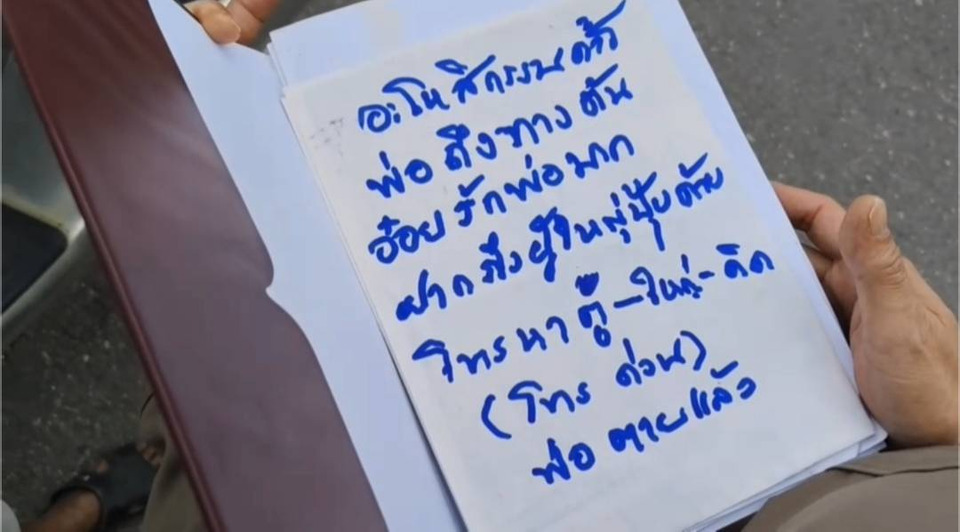 อะโหสิกรรมด้วย
พ่อถึงทางตัน
อ๋อยรักพ่อมาก
ฝากถึงผู้ใหญ่ปุ้ยด้วย
โทรหาตู่-ใหญ่-คิด
(โทร ด่วน)
พ่อตายแล้ว